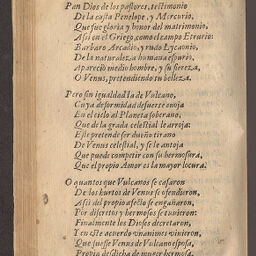 Pan Dios de los pastores, testimonio
De la casta Penelope, y Mercurio,
Que fue gloria y honor del matrimonio,
Assi en el Griego, como el campo Etrurio:
Barbaro Arcadio, y rudo Lycaonio,
De la naturaleza humana espurio,
Aparecio medio hombre, y su fiereza,
O Venus, pretendiendo tu belleza.
Pero sin igualdad la de Vulcano,
Cuya deformidad desuerte enoja
En el cielo al Planeta soberano,
Que de la grada celestial le arroja:
Este pretende ser dueño tirano
De Venus celestial, y se le antoja
Que puede competir con su hermosura,
Que el propio Amor es la mayor locura.
O quantos que Vulcanos se casaron
De los hurtos de Venus se ofendieron,
Assi del propio afecto se engañaron,
Por discretos y hermosos se tuvieron:
Finalmente los Dioses decretaron,
Y en este acuerdo vnanimes vinieron,
Que fuesse Venus de Vulcano esposa,
Propia desdicha de muger hermosa.